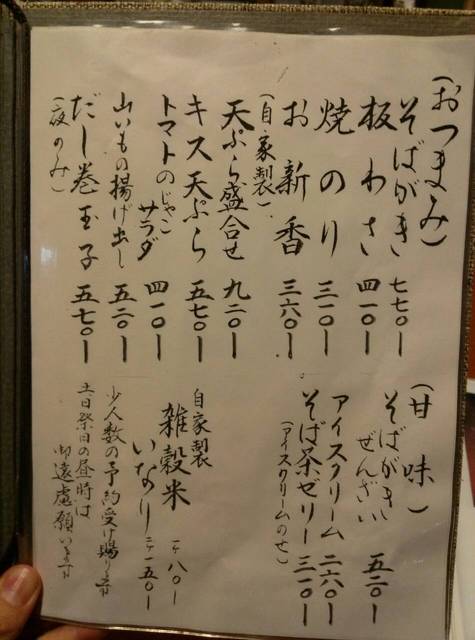 (おつまみ)
そばがき 七七〇ー
板わさ 四一〇ー
焼のり 三一〇ー
お新香 三六〇ー
(自家製)
天ぷら盛合せ 九二〇ー
キス天ぷら 五七〇ー
トマトのじゃこサラダ 四一〇ー
山いもの揚げ出し 五二〇ー
だし巻玉子 五七〇ー
(夜のみ)
(甘味)
そばがき
ぜんざい 五二〇ー
アイスクリーム 二六〇ー
そば茶ゼリー 三一〇ー
(アイスクリームのせ)
自家製
雑穀米
いなり
一ケ 八〇ー
二ケ 一五〇ー
少人数の予約受け賜ります
土日祭日の昼時は
御遠慮願います